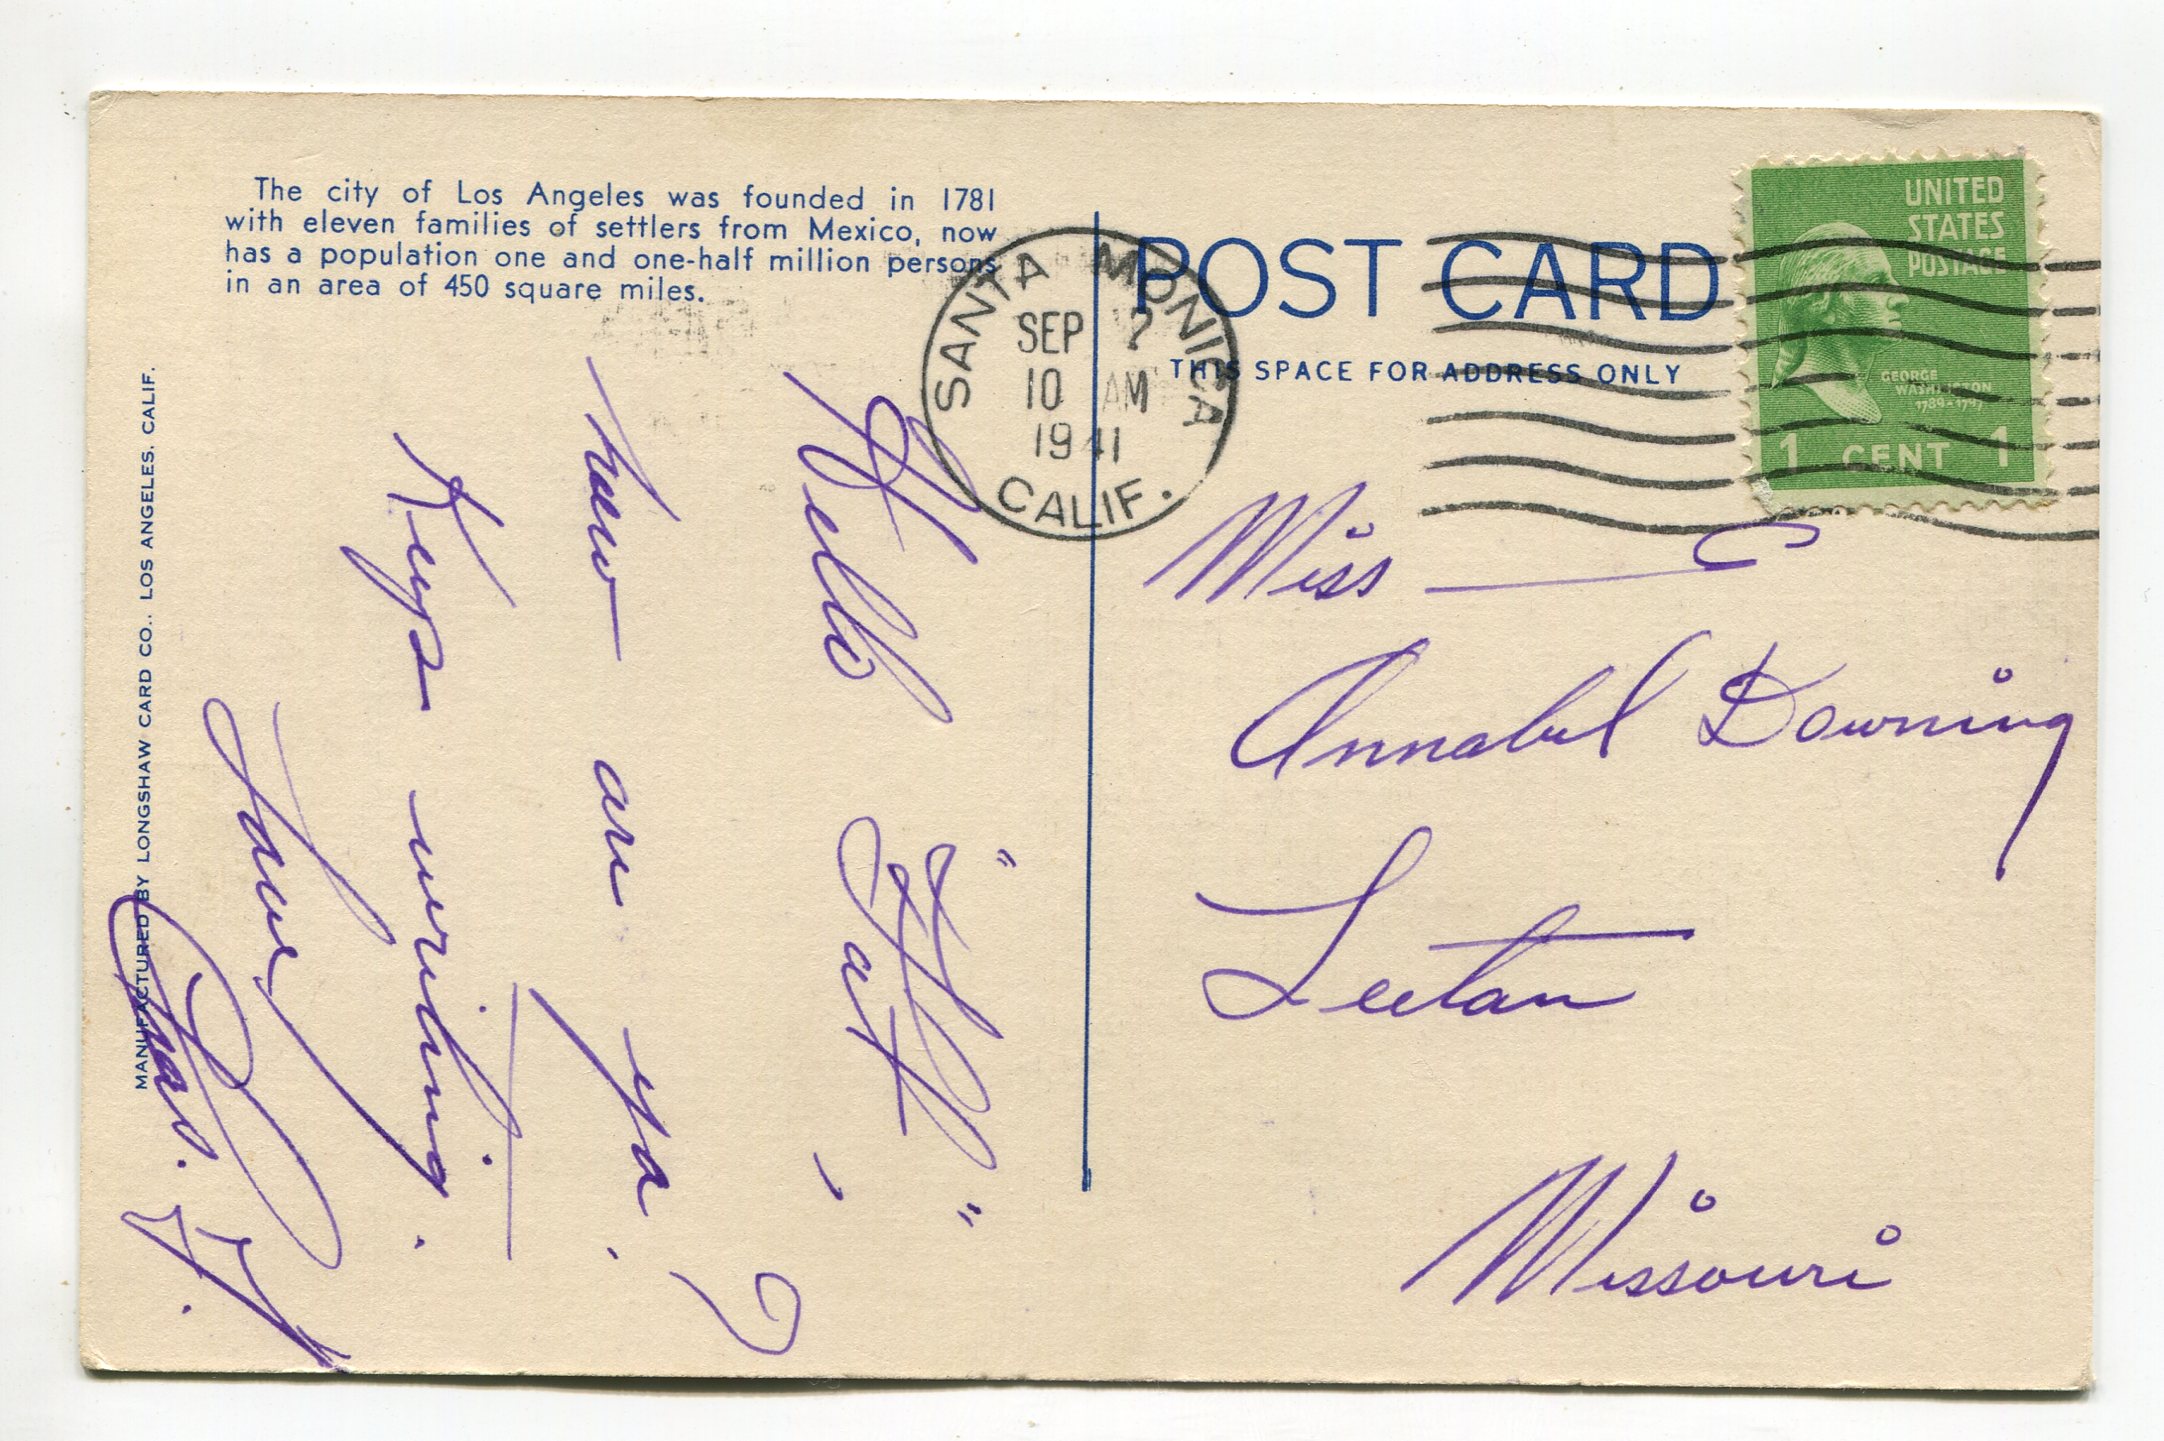 The city of Los Angeles was founded in 1781
with eleven families of settlers from Mexico, now
has a population one and one-half million persons
in an area of 450 square miles.
MANUFACTURED BY LONGSHAW CARD CO., LOS ANGELES, CALIF.
POST CARD
THIS SPACE FOR ADDRESS ONLY
SANTA MONICA
SEP 2
10 AM
1941
CALIF.
UNITED
STATES
POSTAGE
GEORGE
WASHINGTON
1789-1797
1 CENT 1
Hello
how are ya?
Keep writing.
Love
Miss
Annabel Downing
Leeton
Missouri